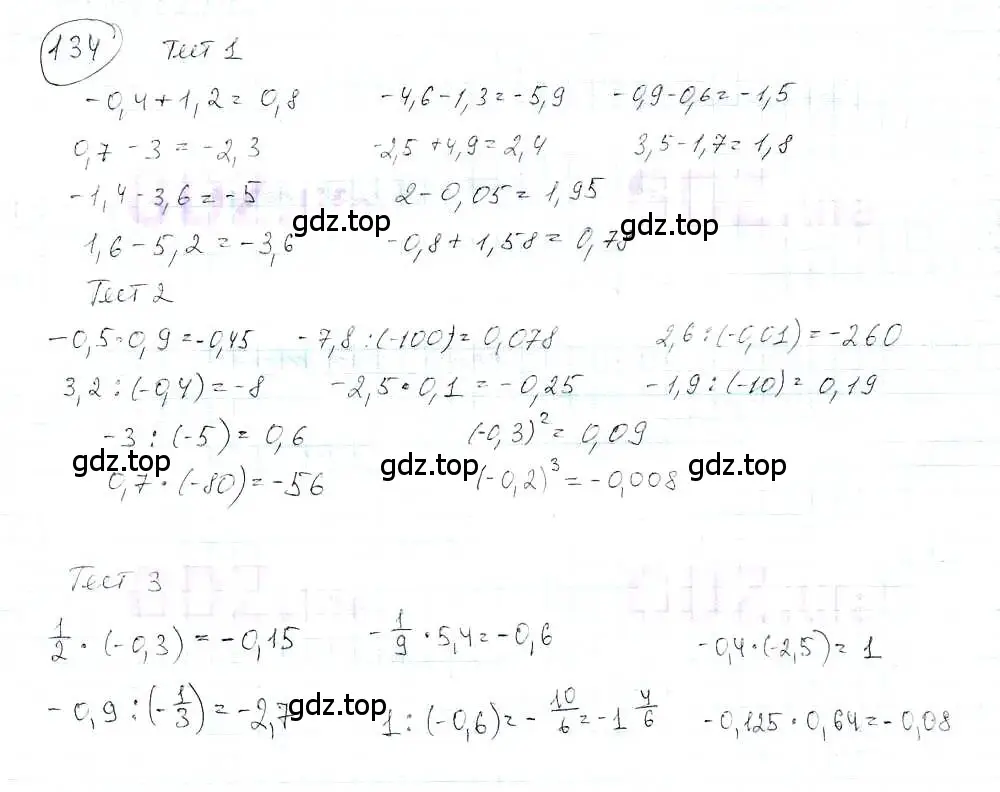 134 Тест 1
-0,4+1,2=0,8 -4,6-1,3=-5,9 -0,9-0,6=-1,5
0,7-3=-2,3 -2,5+4,9=2,4 3,5-1,7=1,8
-1,4-3,6=-5 2-0,05=1,95
gdz.top gdz.top
1,6-5,2=-3,6 -0,8+1,58=0,78
Тест 2
-0,5·0,9=-0,45 -7,8:(-100)=0,078 2,6:(-0,01)=-260
3,2:(-0,4)=-8 -2,5·0,1=-0,25 -1,9:(-10)=0,19
-3:(-5)=0,6 (-0,3)²=0,09
gdz.top gdz.top gdz.top
0,7·(-80)=-56 (-0,2)³=-0,008
Тест 3
1/2·(-0,3)=-0,15 -1/9·5,4=-0,6 -0,4·(-2,5)=1
gdz.top gdz.top
-0,9:(-1/3)=-2,7 1:(-0,6)=-10/6=-1 4/6 -0,125·0,64=-0,08